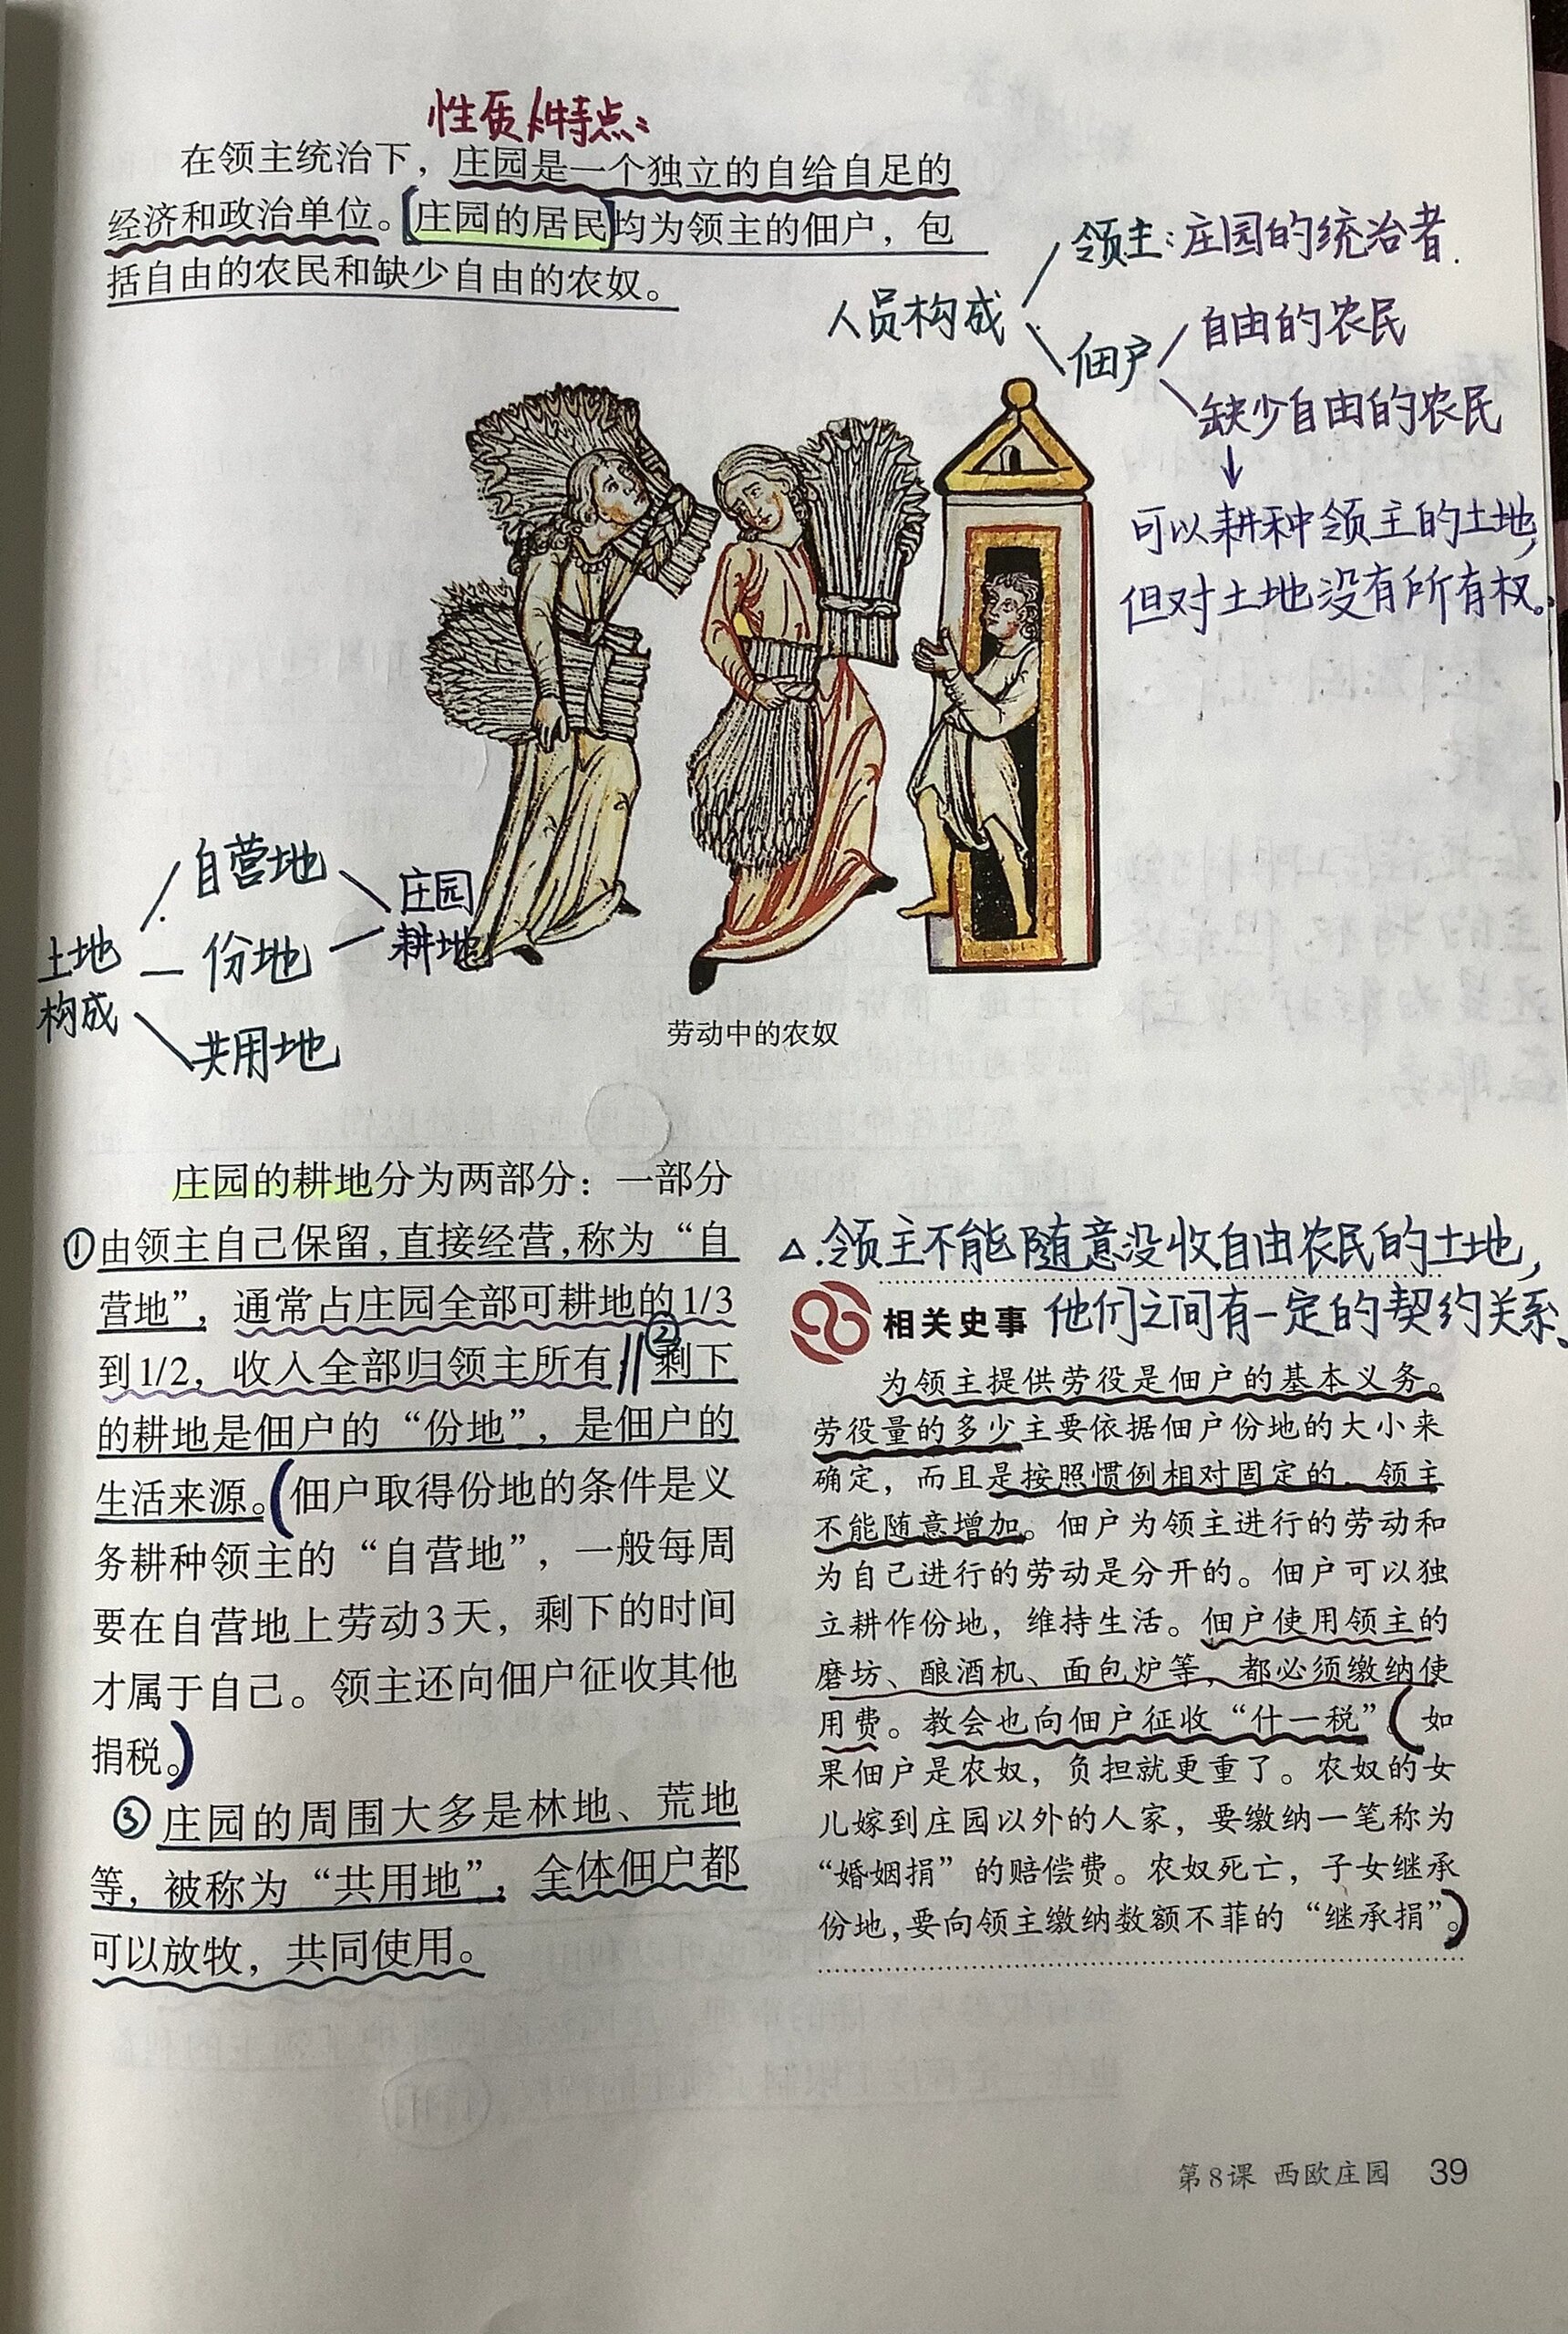 性质/特点：
在领主统治下，庄园是一个独立的自给自足的
经济和政治单位。庄园的居民均为领主的佃户，包
括自由的农民和缺少自由的农奴。
人员构成
领主：庄园的统治者.
佃户
自由的农民
缺少自由的农民
↓
可以耕种领主的土地，
但对土地没有所有权。
土地
构成
自营地
份地
共用地
庄园
耕地
劳动中的农奴
庄园的耕地分为两部分：一部分
①由领主自己保留，直接经营，称为“自
营地”，通常占庄园全部可耕地的1/3
到1/2，收入全部归领主所有；②剩下
的耕地是佃户的“份地”，是佃户的
生活来源。（佃户取得份地的条件是义
务耕种领主的“自营地”，一般每周
要在自营地上劳动3天，剩下的时间
才属于自己。领主还向佃户征收其他
捐税。）
③庄园的周围大多是林地、荒地
等，被称为“共用地”，全体佃户都
可以放牧，共同使用。
△.领主不能随意没收自由农民的土地，
他们之间有一定的契约关系。
相关史事
为领主提供劳役是佃户的基本义务。
劳役量的多少主要依据佃户份地的大小来
确定，而且是按照惯例相对固定的，领主
不能随意增加。佃户为领主进行的劳动和
为自己进行的劳动是分开的。佃户可以独
立耕作份地，维持生活。佃户使用领主的
磨坊、酿酒机、面包炉等，都必须缴纳使
用费。教会也向佃户征收“什一税”。（如
果佃户是农奴，负担就更重了。农奴的女
儿嫁到庄园以外的人家，要缴纳一笔称为
“婚姻捐”的赔偿费。农奴死亡，子女继承
份地，要向领主缴纳数额不菲的“继承捐”。）
第8课 西欧庄园 39